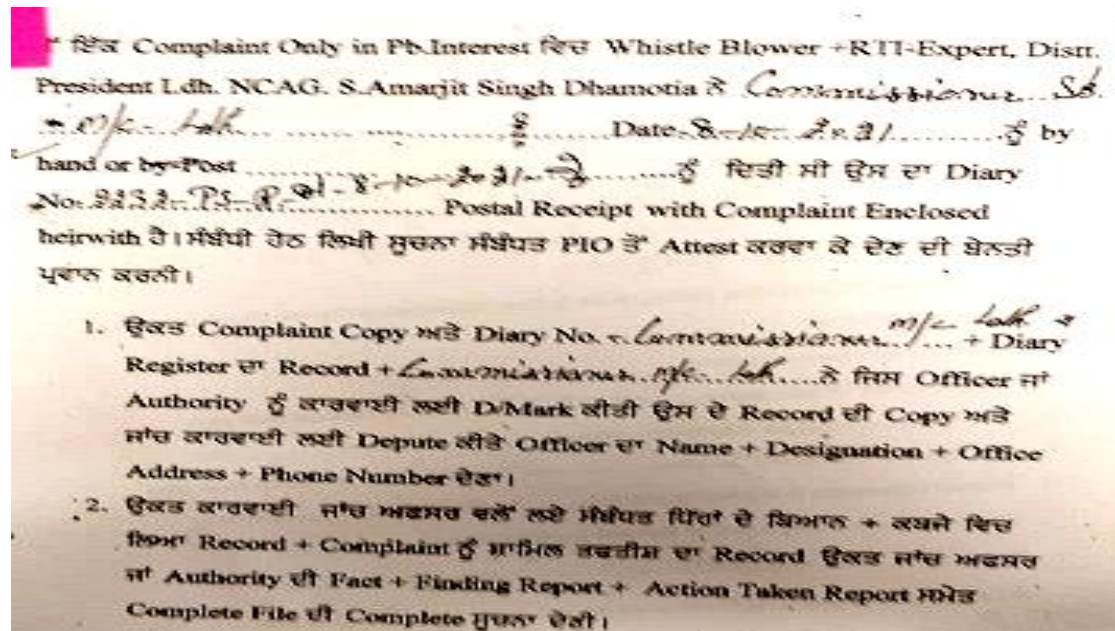 ਇੱਕ Complaint Only in Pb.Interest ਵਿਚ Whistle Blower +RTI-Expert, Distt.
President Ldh. NCAG. S.Amarjit Singh Dhamotia ਨੇ Commissioner Sb.
M/c- Ldh. Date 8-10-2021 ਨੂੰ by
hand or by Post 8-10-2021 ਨੂੰ ਦਿਤੀ ਸੀ ਉਸ ਦਾ Diary
No. Postal Receipt with Complaint Enclosed
heirwith ਹੈ। ਸੰਬੰਧੀ ਹੇਠ ਲਿਖੀ ਸੂਚਨਾ ਸੰਬੰਧਤ PIO ਤੋਂ Attest ਕਰਵਾ ਕੇ ਦੇਣ ਦੀ ਬੇਨਤੀ
ਪ੍ਰਵਾਨ ਕਰਨੀ।
1. ਉਕਤ Complaint Copy ਅਤੇ Diary No. Commissioner M/c Ldh + Diary
Register ਦਾ Record + Commissioner M/c Ldh ਨੇ ਜਿਸ Officer ਜਾਂ
Authority ਨੂੰ ਕਾਰਵਾਈ ਲਈ D/Mark ਕੀਤੀ ਉਸ ਦੇ Record ਦੀ Copy ਅਤੇ
ਜਾਂਚ ਕਾਰਵਾਈ ਲਈ Depute ਕੀਤੇ Officer ਦਾ Name + Designation + Office
Address + Phone Number ਦੇਣਾ।
2. ਉਕਤ ਕਾਰਵਾਈ ਜਾਂਚ ਅਫਸਰ ਵਲੋਂ ਲਏ ਸੰਬੰਧਤ ਧਿਰਾਂ ਦੇ ਬਿਆਨ + ਕਬਜੇ ਵਿਚ
ਲਿਆ Record + Complaint ਨੂੰ ਸ਼ਾਮਿਲ ਤਫਤੀਸ਼ ਦਾ Record ਉਕਤ ਜਾਂਚ ਅਫਸਰ
ਜਾਂ Authority ਦੀ Fact + Finding Report + Action Taken Report ਸਮੇਤ
Complete File ਦੀ Complete ਸੂਚਨਾ ਦੇਣੀ।